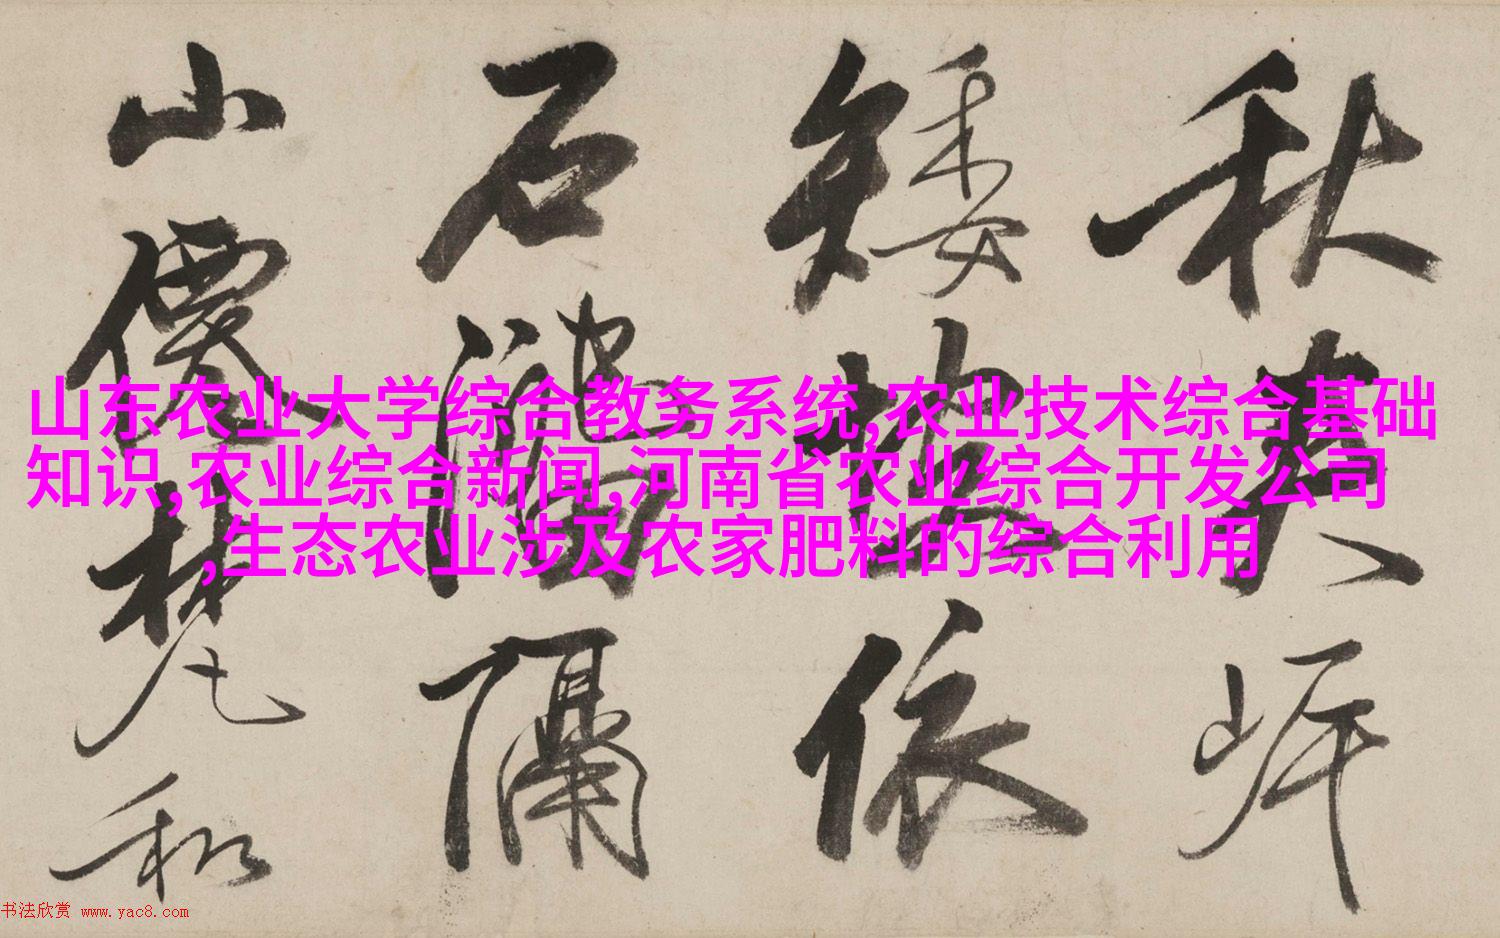 山东农业大学综合教务系统,农业技术综合基础
知识,农业综合新闻,河南省农业综合开发公司
,生态农业涉及农家肥料的综合利用
秋
矮依
石隔
山僕梵和
书法欣赏 www.yac8.com